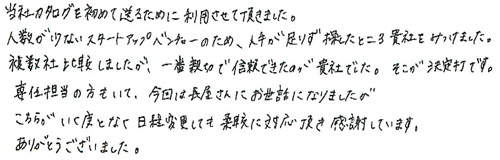 当社カタログを初めて送るために利用させて頂きました。
人数が少ないスタートアップベンチャーのため、人手が足りず探したところ貴社をみつけました。
複数社比較しましたが、一番親切で信頼できたのが貴社でした。そこが決定打です。
専任担当の方もいて、今回は長屋さんにお世話になりましたが
こちらがいく度となく日程変更しても柔軟に対応頂き感謝しています。
ありがとうございました。